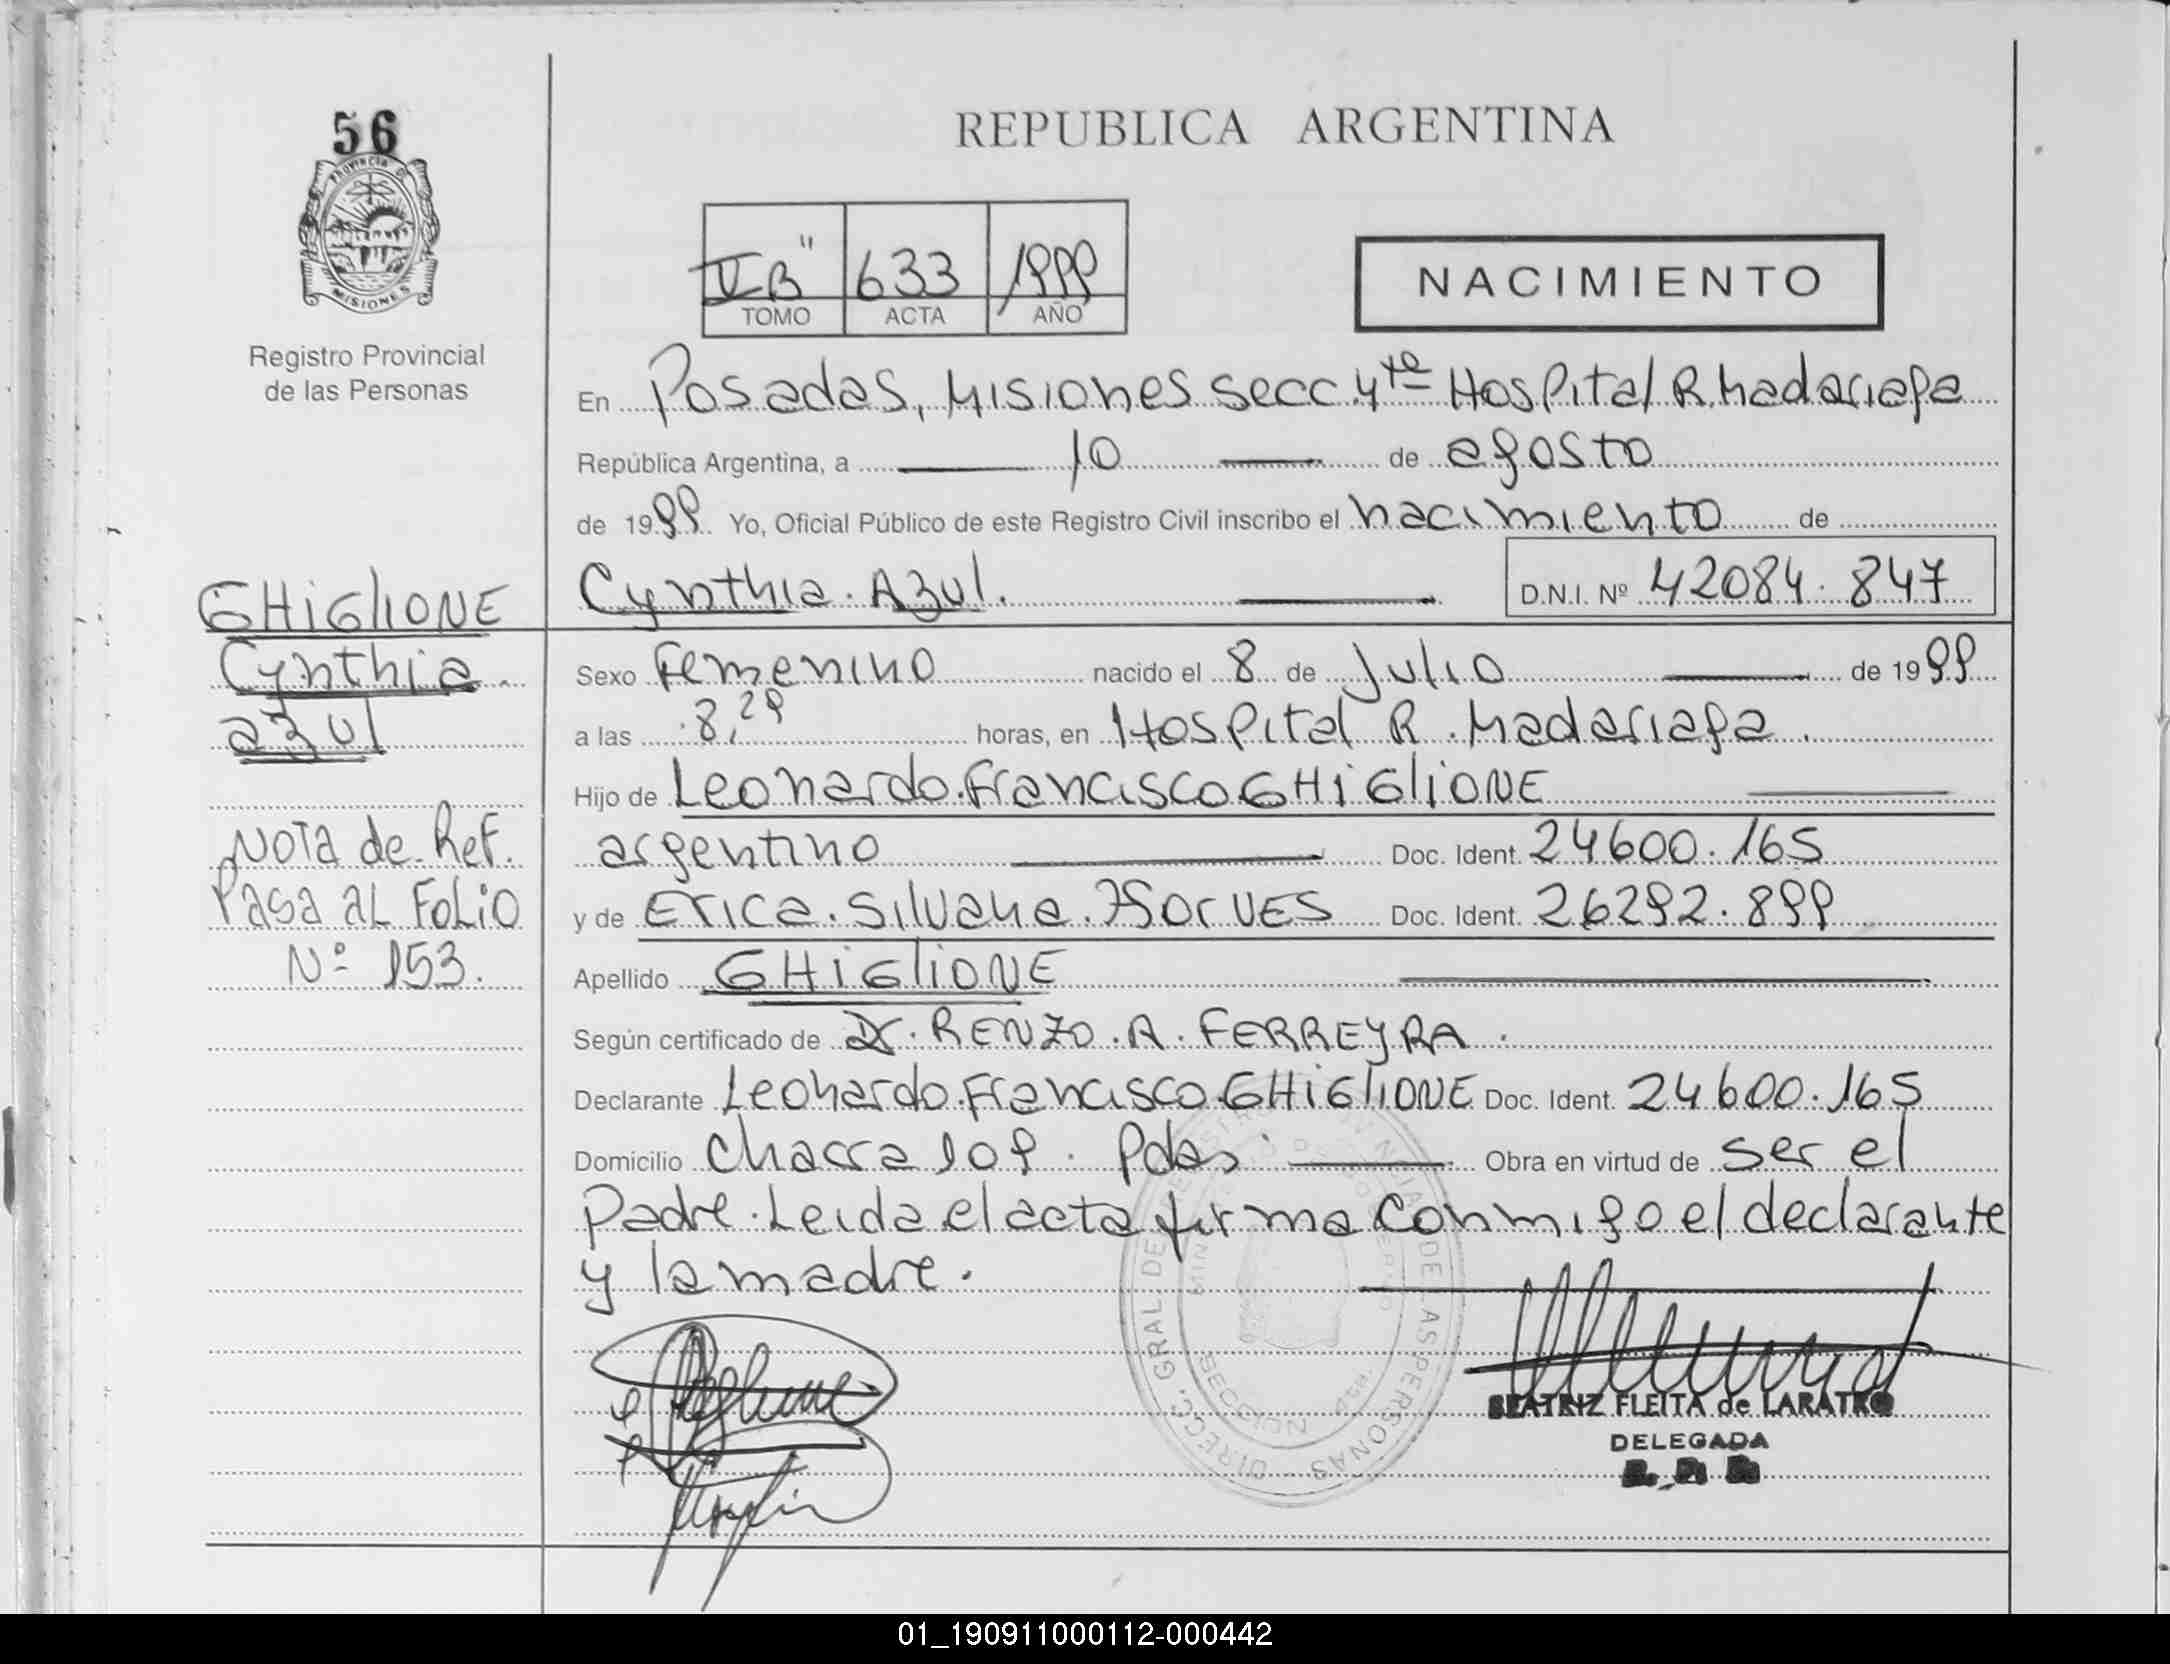 56
PROVINCIA DE
MISIONES
Registro Provincial
de las Personas
REPUBLICA ARGENTINA
633 1999
TOMO ACTA AÑO
NACIMIENTO
En Posadas, Misiones secc. 4ta Hospital R. Madariaga
República Argentina, a 10 de agosto
de 1999 Yo, Oficial Público de este Registro Civil inscribo el nacimiento de
Cynthia. Azul. D.N.I. Nº 42084.847
Sexo Femenino nacido el 8 de Julio de 1999
a las 8,29 horas, en Hospital R. Madariaga.
Hijo de Leonardo Francisco GHiGliONE
argentino Doc. Ident. 24600.165
y de Erica. Silvana. Doc. Ident. 26292.899
Apellido GHiGliONE
Según certificado de Dr. RENZO. A. FERREYRA.
Declarante Leonardo Francisco GHiGliONE Doc. Ident. 24600.165
Domicilio Chacra 109. Pdas Obra en virtud de ser el
Padre. Leida el acta firma conmigo el declarante
y la madre.
GHiGliONE
Cynthia.
azul
NOTA de Ref.
Pasa AL FoLiO
Nº 153.
DIRECC. GRAL DEL REGISTRO PROVINCIAL DE LAS PERSONAS
BEATRIZ FLEITA de LARATRO
DELEGADA
01_190911000112-000442